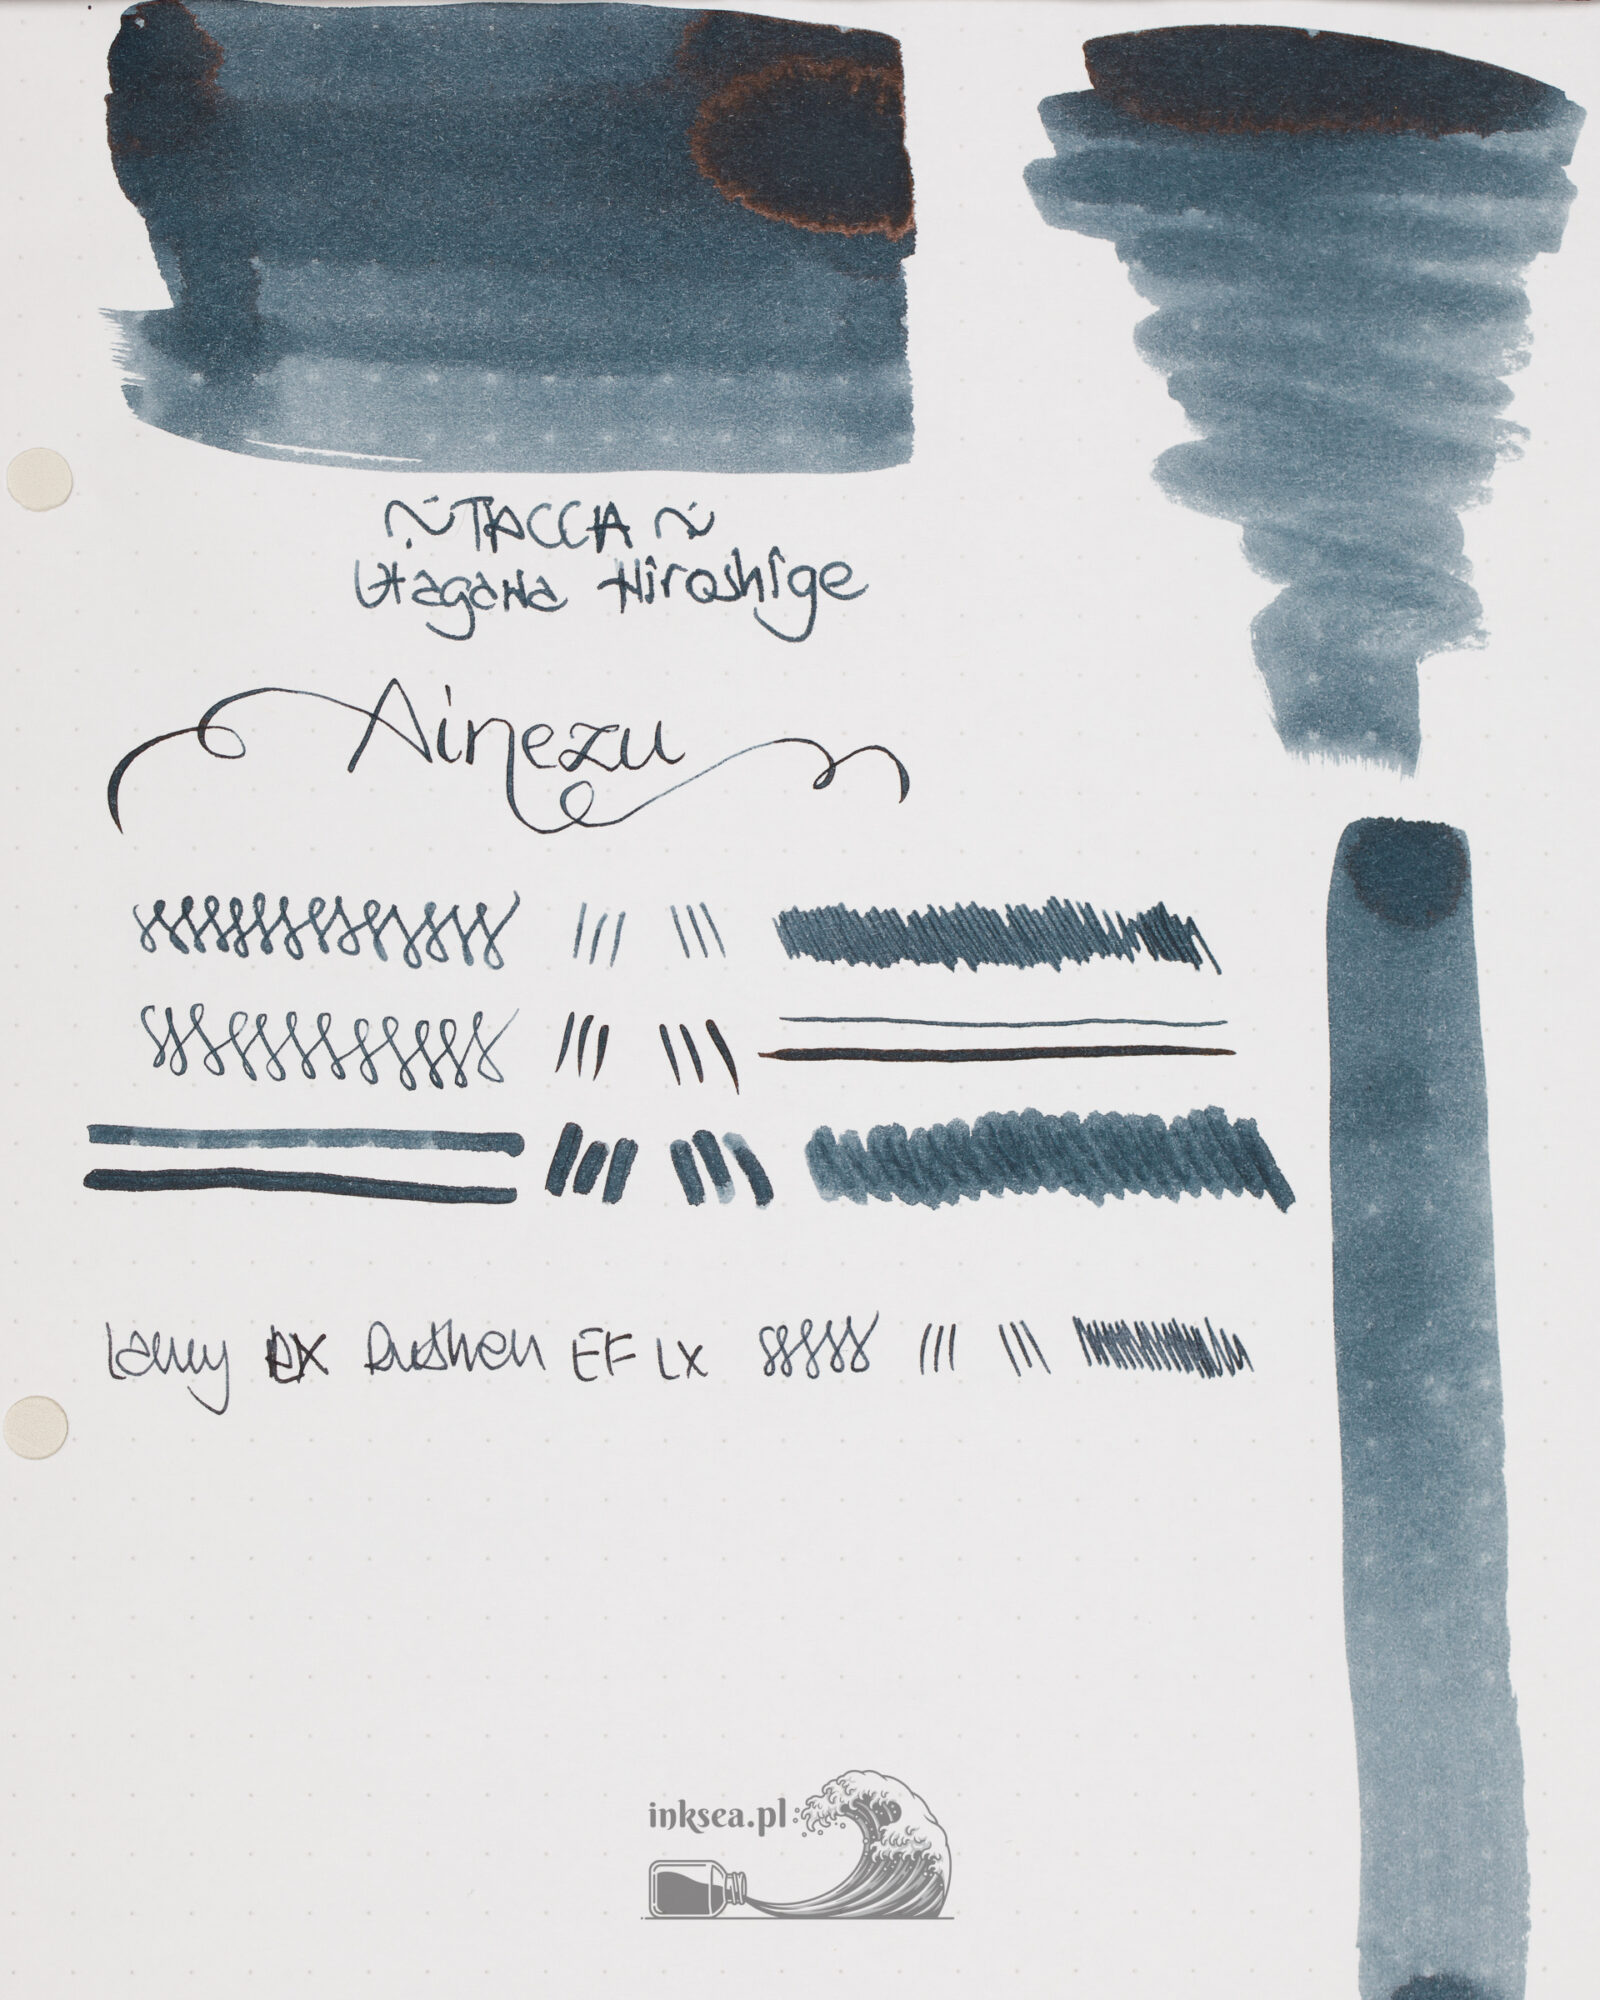 ~ TACCIA ~
Utagawa Hiroshige
Ainezu
Lamy LX Ruthen EF LX
inksea.pl